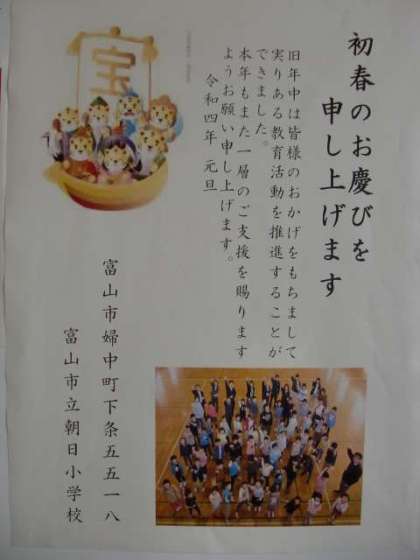 初春のお慶びを
申し上げます
旧年中は皆様のおかげをもちまして
実りある教育活動を推進することが
できました。
本年もまた一層のご支援を賜ります
ようお願い申し上げます。
令和四年 元旦
宝
富山市婦中町下条五五一八
富山市立朝日小学校